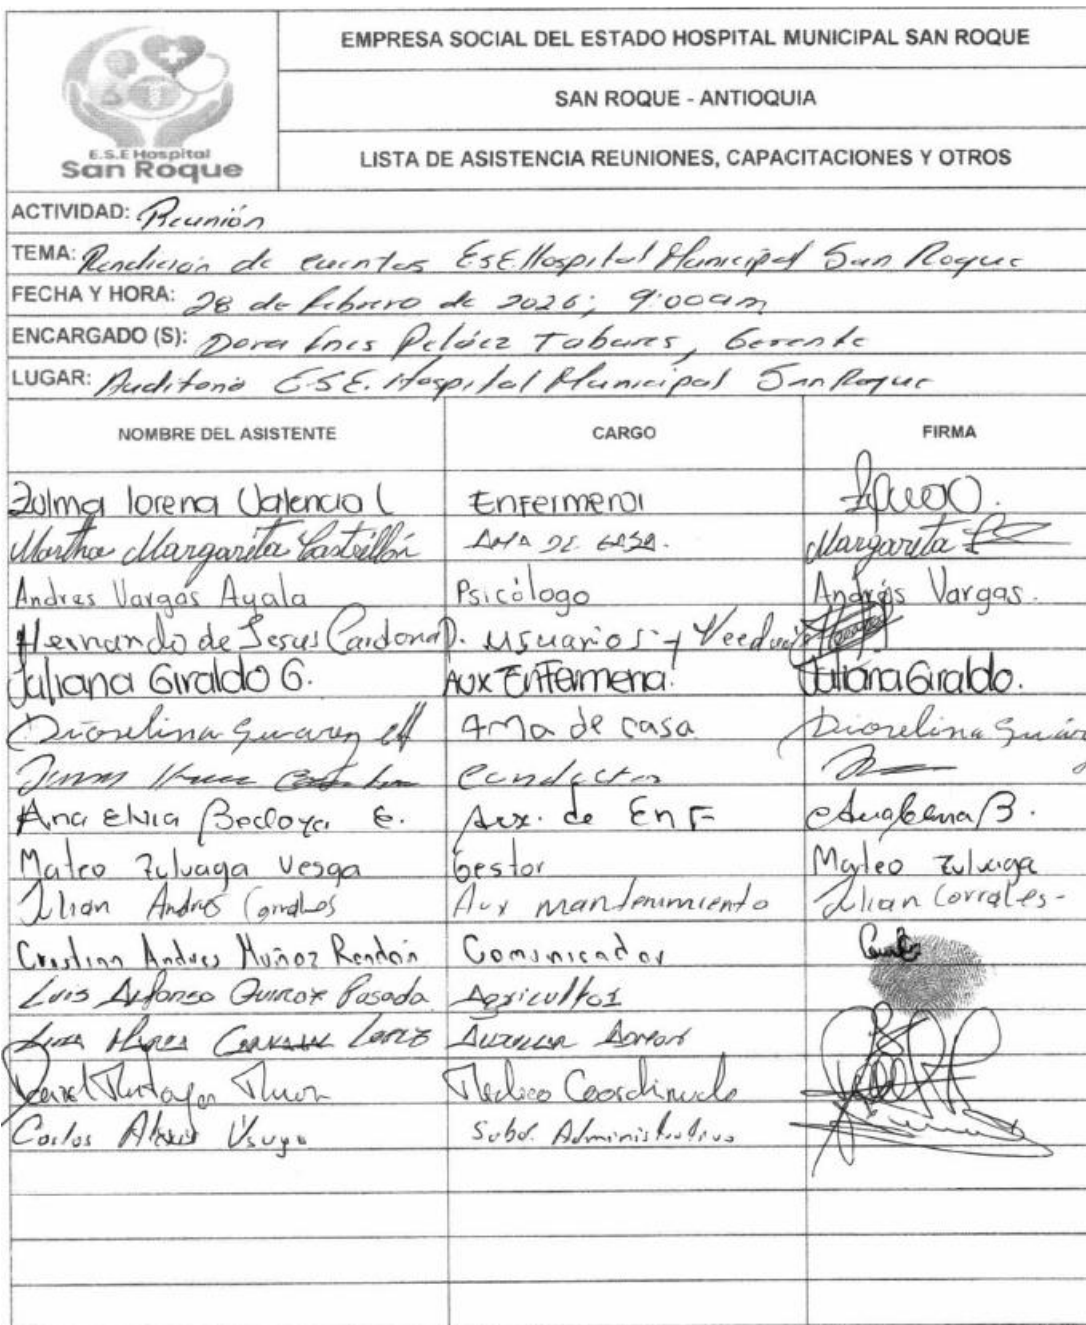 EMPRESA SOCIAL DEL ESTADO HOSPITAL MUNICIPAL SAN ROQUE
SAN ROQUE - ANTIOQUIA
E.S.E Hospital
San Roque
LISTA DE ASISTENCIA REUNIONES, CAPACITACIONES Y OTROS
ACTIVIDAD: Reunión
TEMA: Rendición de cuentas ESE Hospital Municipal San Roque
FECHA Y HORA: 28 de febrero de 2026; 9:00am
ENCARGADO (S): Dora Ines Peláez Tabares, Gerente
LUGAR: Auditorio E.S.E. Hospital Municipal San Roque
NOMBRE DEL ASISTENTE CARGO FIRMA
Zulma lorena Valencia L Enfermera
Martha Margarita Castrillón AMA DE CASA. Margarita
Andres Vargas Ayala Psicólogo Andrés Vargas.
Hernando de Jesus Cardona D. usuarios y
Juliana Giraldo G. Aux Enfermeria. Juliana Giraldo.
Diorelina Ama de casa Diorelina
Conductor
Ana Elvia Bedoya E. Aux. de Enf B.
Mateo Zuluaga Vesga Gestor Mateo Zuluaga
Julian Andres Corrales Aux mantenimiento Julian Corrales-
Cristian Andres Muñoz Rendón Comunicador
Luis Alfonso Quiroz Posada Agricultor
Auxiliar
Medico Coordinado
Carlos Alexis Usuga Subd. Administrativo